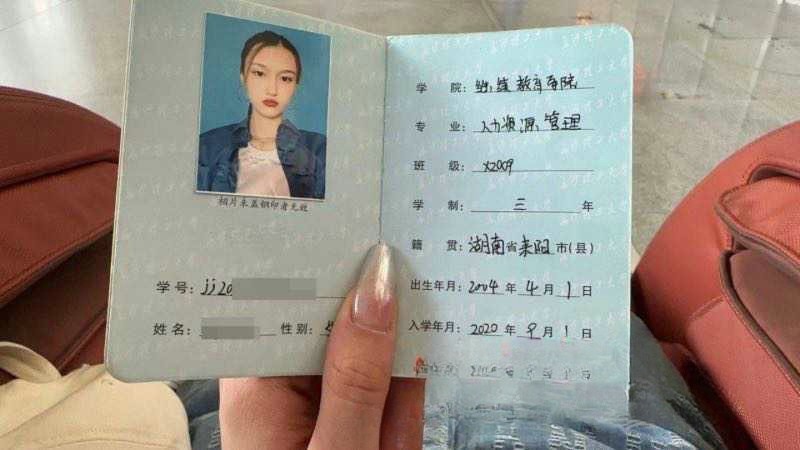 相片未盖钢印者无效
学号：jj20
姓名： 性别：
学 院：继续教育学院
专 业：人力资源管理
班 级：X2009
学 制：三 年
籍 贯：湖南省耒阳市(县)
出生年月：2004年4月1日
入学年月：2020年9月1日